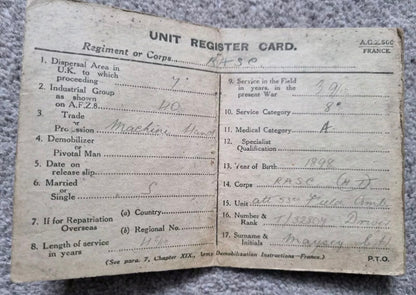 UNIT REGISTER CARD.
A.G.Z. 50C
FRANCE.
Regiment or Corps RASC
1. Dispersal Area in U.K. to which proceeding
2. Industrial Group as shown on A.F.Z.8 40
3. Trade or Profession Machine
4. Demobilizer or Pivotal Man
5. Date on release slip
6. Married or Single S
7. If for Repatriation Overseas (a) Country
(b) Regional No.
8. Length of service in years
9. Service in the Field in years, in the present War
10. Service Category 8
11. Medical Category A
12. Specialist Qualification
13. Year of Birth 1898
14. Corps RASC (H.T)
15. Unit att 53rd Field Amb
16. Number & Rank
17. Surname & Initials
(See para. 7, Chapter XIX., Army Demobilization Instructions—France.)
P.T.O.